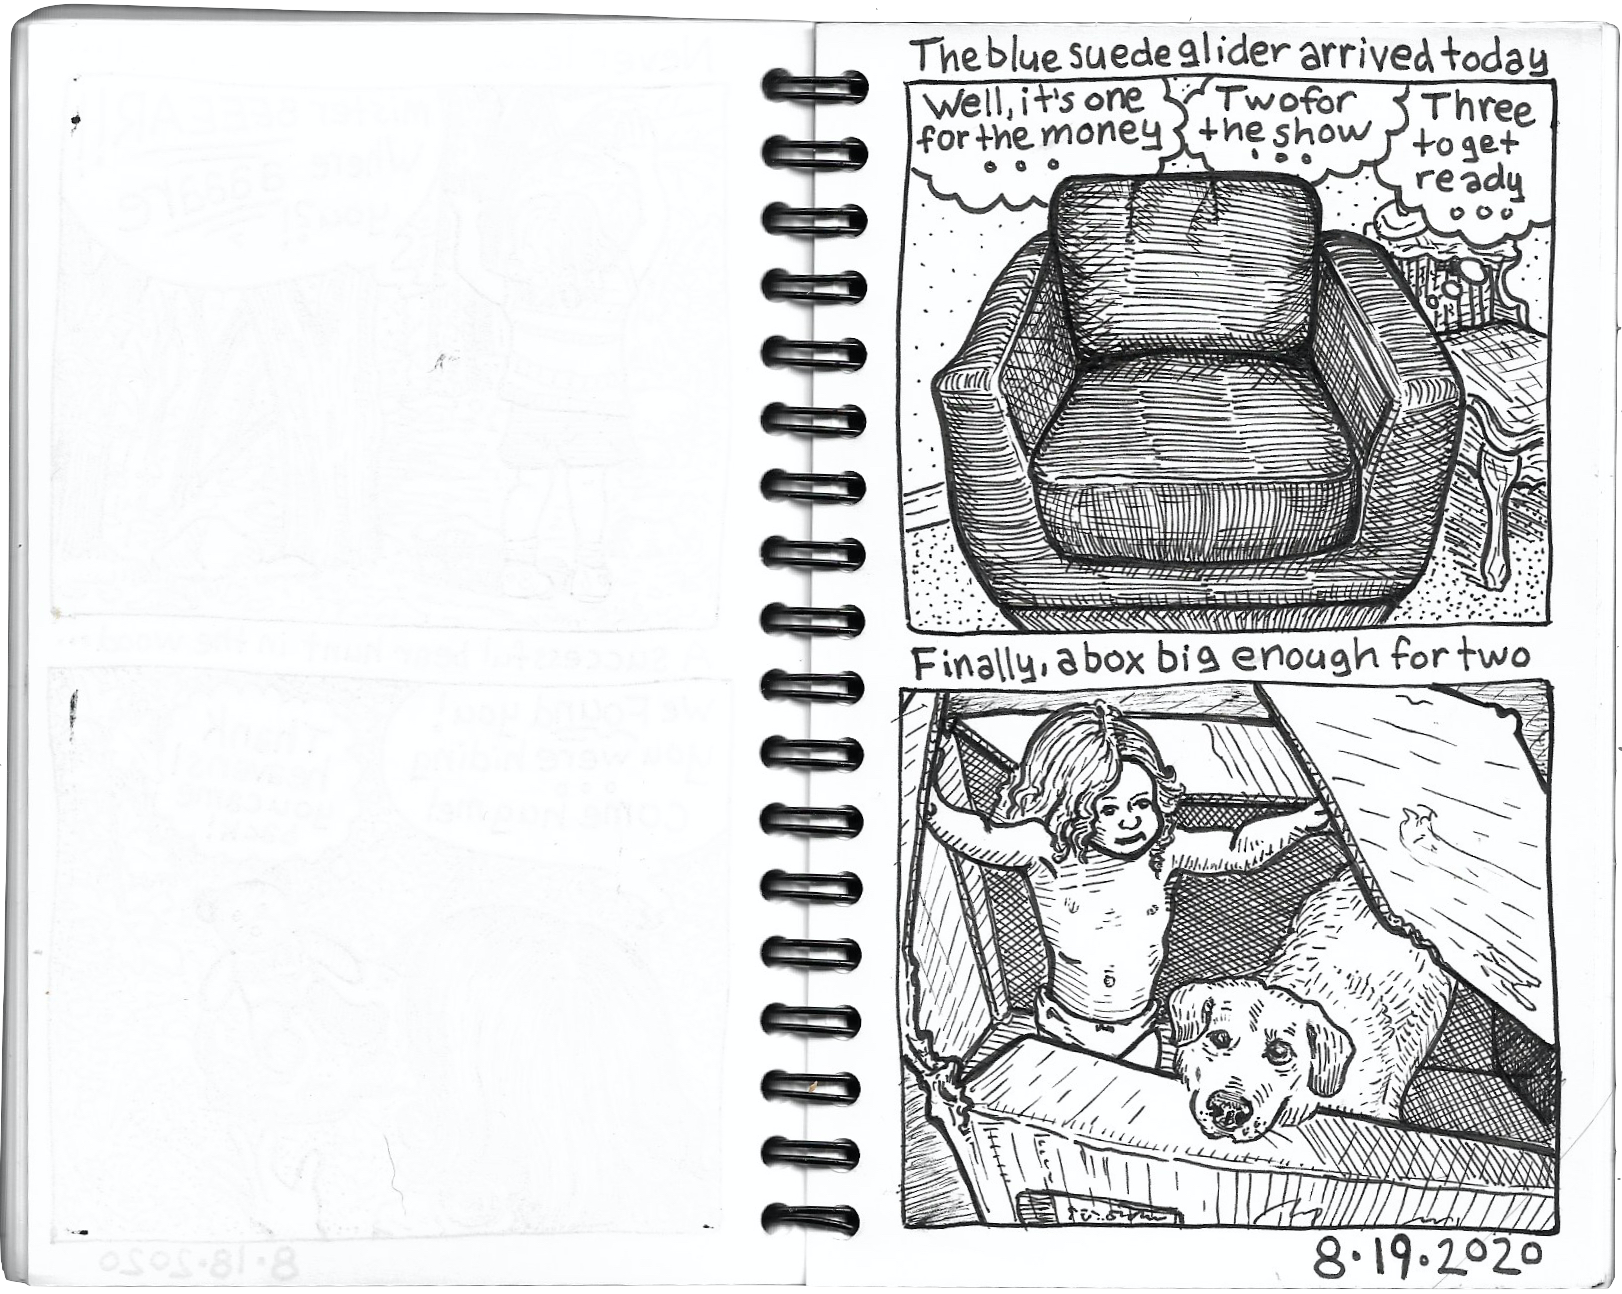 The blue suede glider arrived today
Well, it's one
for the money
...
Two for
the show
...
Three
to get
ready
...
Finally, a box big enough for two
8.19.2020